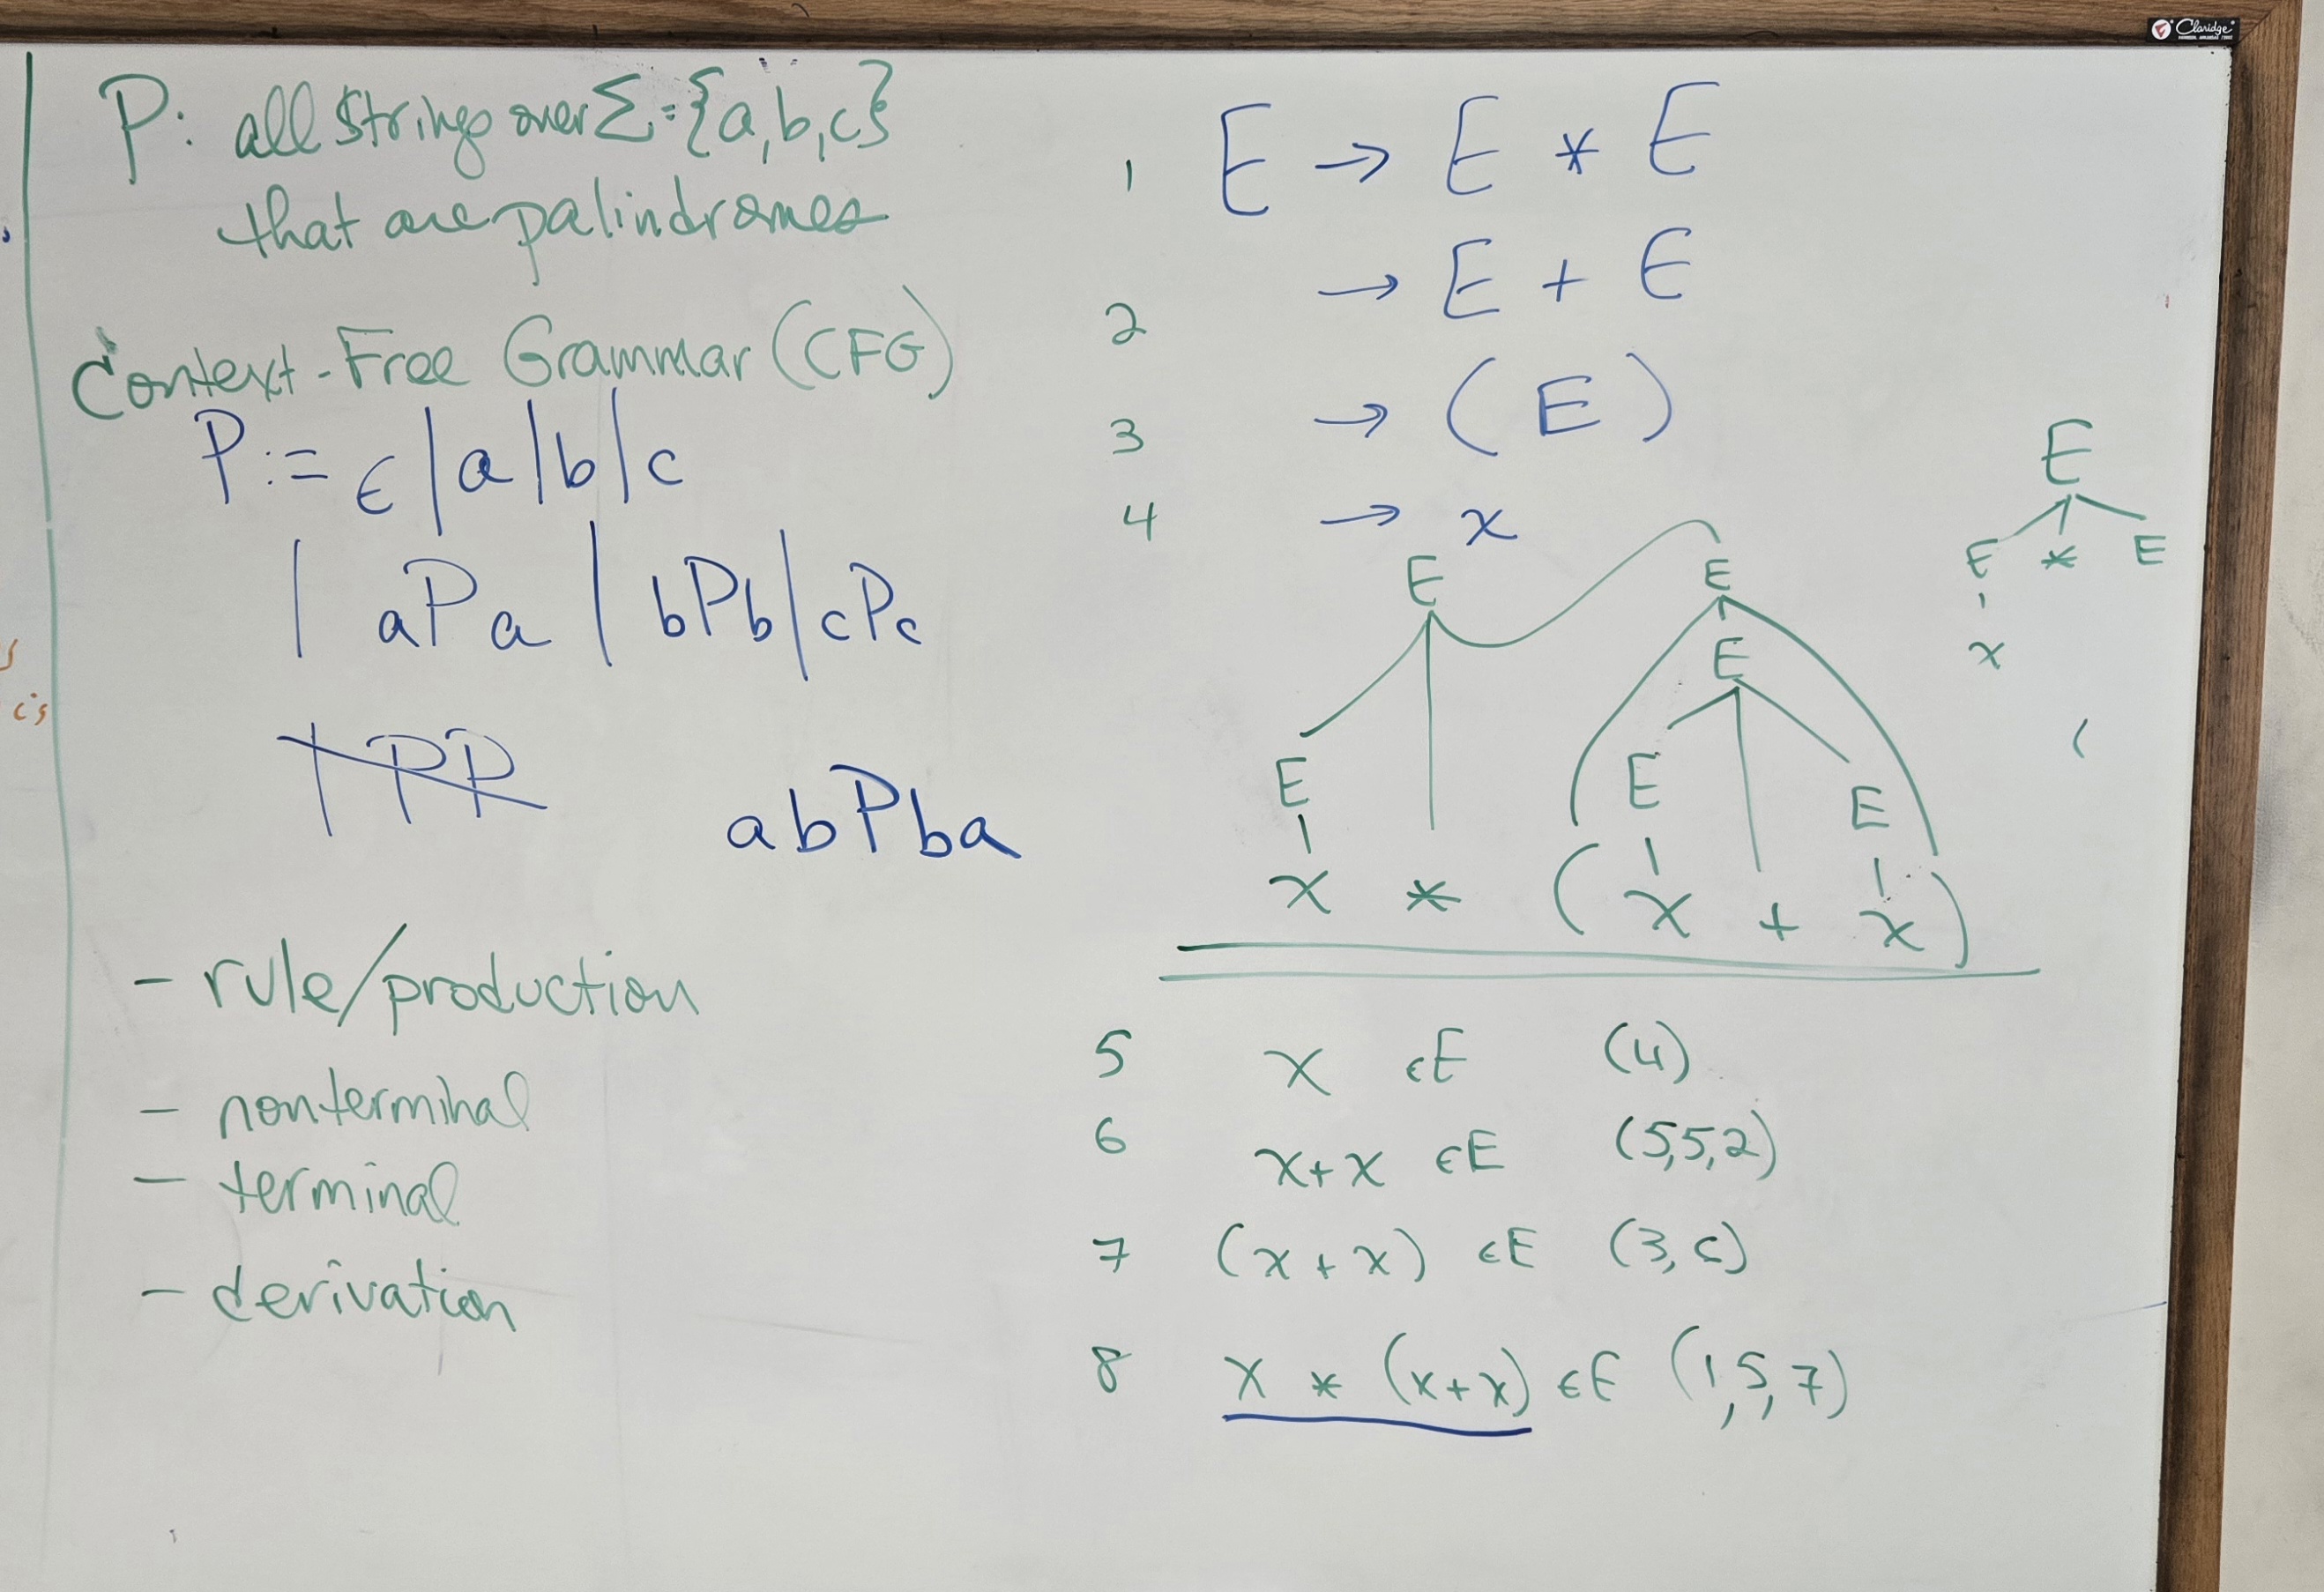 Claridge
P: all strings over Σ={a,b,c}
that are palindromes
Context-Free Grammar (CFG)
P := ϵ | a | b | c
| aPa | bPb | cPc
| PP
abPba
- rule/production
- nonterminal
- terminal
- derivation
1 E → E * E
2 → E + E
3 → ( E )
4 → x
E
E
E
E E
E
x * ( x + x )
E
E * E
x
(
5 x ϵE (4)
6 x+x ϵE (5,5,2)
7 (x + x) ϵE (3,6)
8 x * (x+x) ϵE (1,5,7)
is